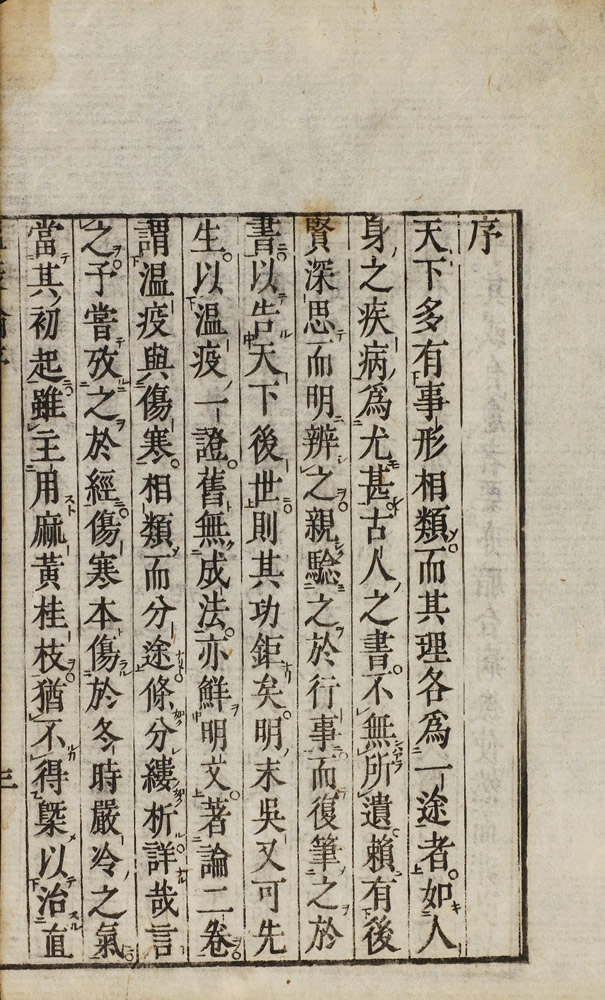 序
天下多有事形相類而其理各爲一途者如人
身之疾病爲尤甚古人之書不無所遺賴有後
賢深思而明辨之親驗之於行事而復筆之於
書以告天下後世則其功鉅矣明末吳又可先
生以溫疫一證舊無成法亦鮮明文著論二卷
謂溫疫與傷寒相類而分途條分縷析詳哉言
之予嘗攷之於經傷寒本傷於冬時嚴冷之氣
當其初起雖主用麻黃桂枝猶不得槩以治直